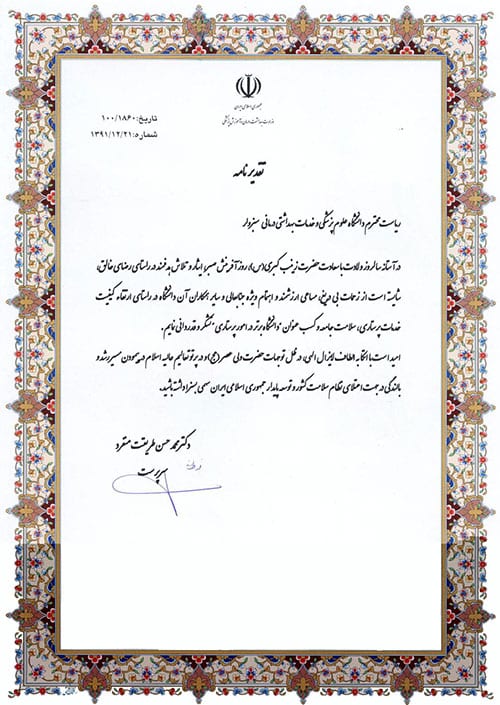 جمهوری اسلامی ایران
وزارت بهداشت، درمان و آموزش پزشکی
تاریخ: ۱۰۰/۱۸۶۰
شماره: ۱۳۹۱/۱۲/۲۱
تقدیر نامه
ریاست محترم دانشگاه علوم پزشکی و خدمات بهداشتی درمانی سبزوار
در آستانه سالروز ولادت با سعادت حضرت زینب کبری (س)، روز آفرینش صبر، ایثار و تلاش هدفمند در راستای رضای خالق،
شایسته است از زحمات بی دریغ، مساعی ارزشمند و اهتمام ویژه جنابعالی و سایر همکاران آن دانشگاه در راستای ارتقاء کیفیت
خدمات پرستاری، سلامت جامعه و کسب عنوان "دانشگاه برتر در امور پرستاری" تشکر و قدردانی نمایم.
امید است با اتکا به الطاف لایزال الهی، در ظل توجهات حضرت ولی عصر (عج) و در پرتو تعالیم عالیه اسلام در پیمودن مسیر رشد و
بالندگی در جهت اعتلای نظام سلامت کشور و توسعه پایدار جمهوری اسلامی ایران سهمی بسزا داشته باشید.
دکتر محمد حسن طریقت منفرد
سرپرست